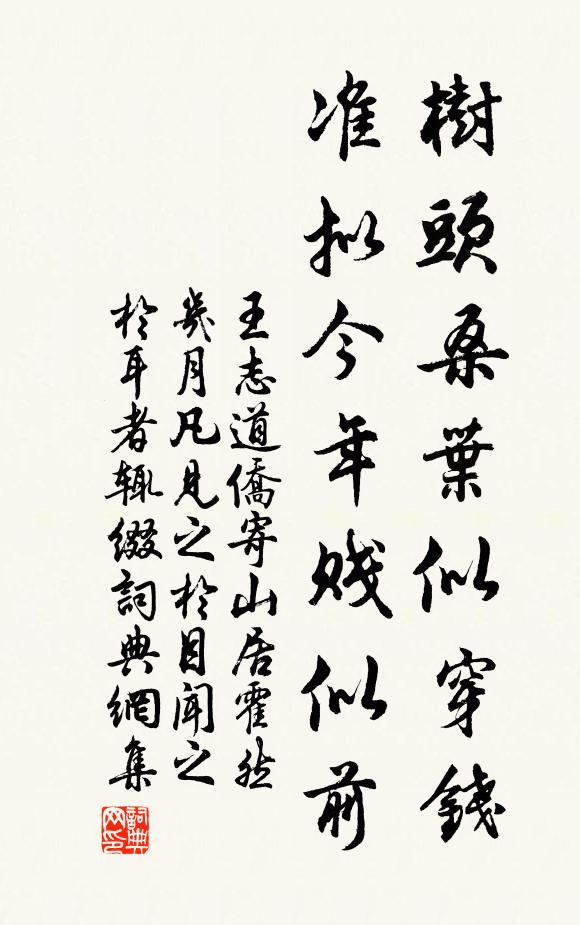 樹頭桑葉似穿錢
准拟今年賤似前
王志道僑寄山居霍然
幾月凡見之於目聞之
於耳者輒綴詞典網集
詞典网印